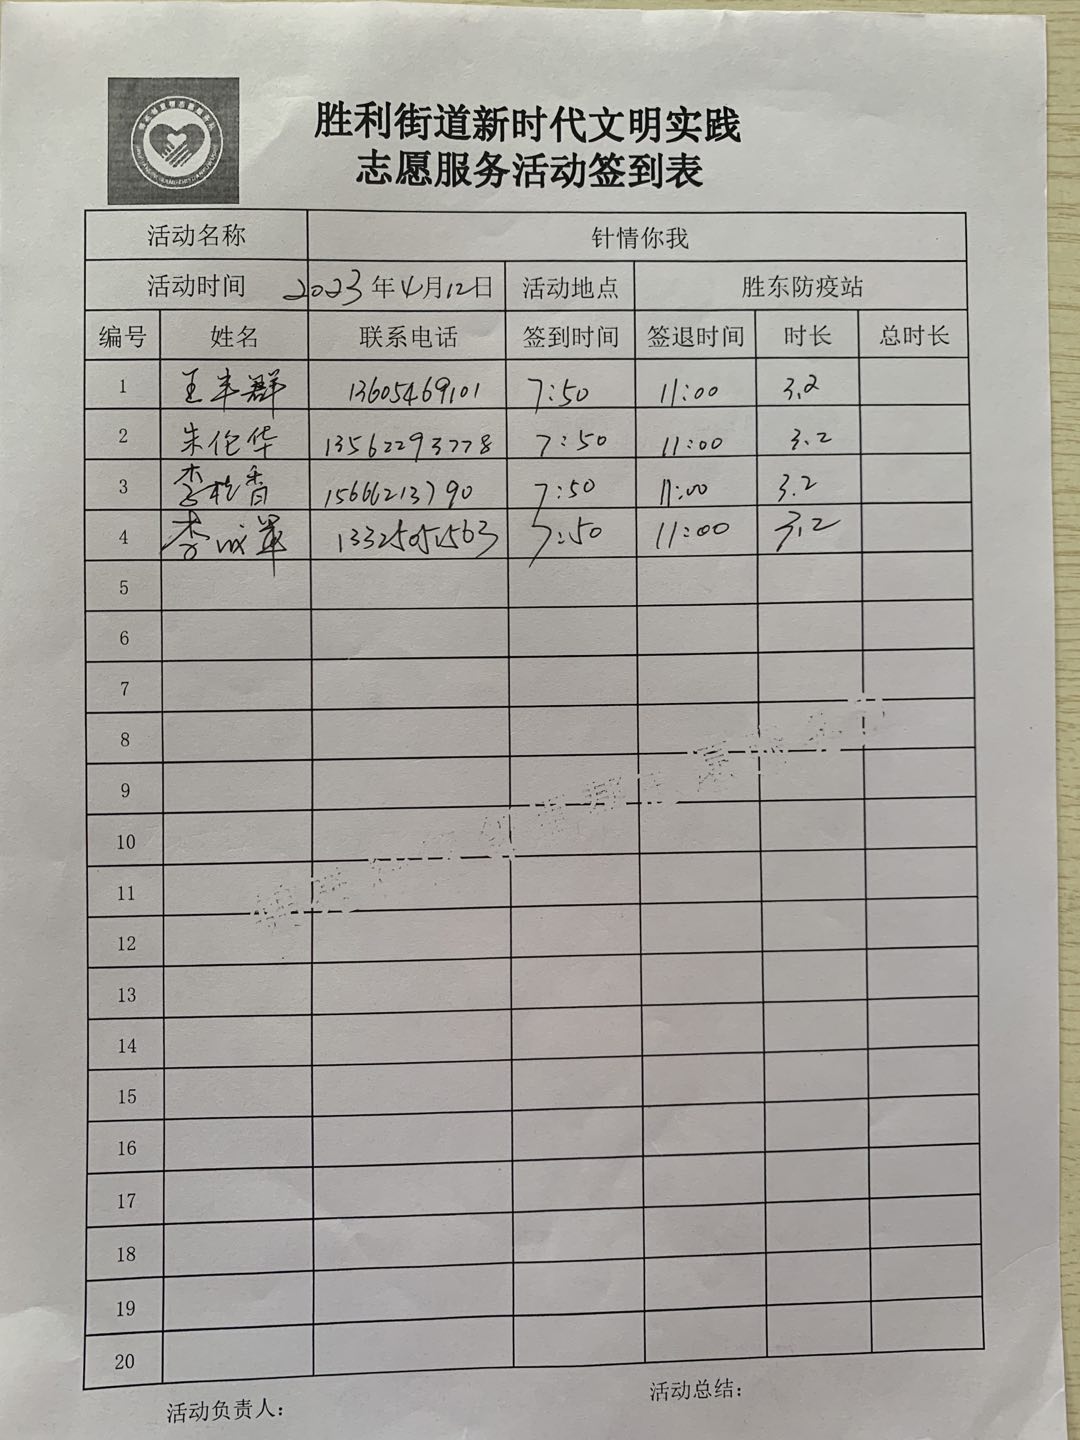 胜利街道新时代文明实践
志愿服务活动签到表
活动名称 针情你我
活动时间 2023年4月12日 活动地点 胜东防疫站
编号 姓名 联系电话 签到时间 签退时间 时长 总时长
1 王丰群 13605469101 7:50 11:00 3.2
2 朱伦华 13562293778 7:50 11:00 3.2
3 李桂香 15666213790 7:50 11:00 3.2
4 李成军 13325051563 7:50 11:00 3.2
5
6
7
8
9
10
11
12
13
14
15
16
17
18
19
20
活动负责人: 活动总结: